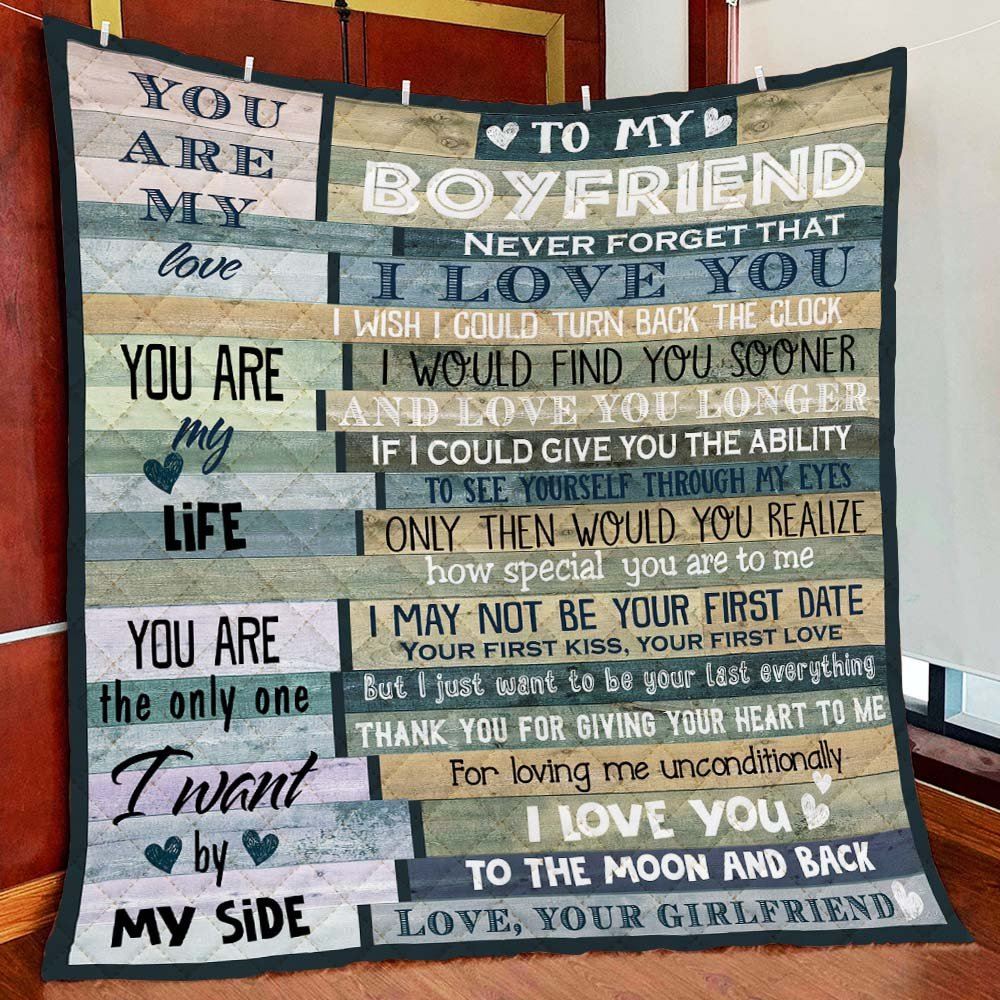 YOU
ARE
MY
love
YOU ARE
my
LiFE
YOU ARE
the only one
I want
by
MY SiDE
TO MY
BOYFRIEND
NEVER FORGET THAT
I LOVE YOU
I WISH I COULD TURN BACK THE CLOCK
I WOULD FIND YOU SOONER
AND LOVE YOU LONGER
IF I COULD GIVE YOU THE ABILITY
TO SEE YOURSELF THROUGH MY EYES
ONLY THEN WOULD YOU REALIZE
how special you are to me
I MAY NOT BE YOUR FIRST DATE
YOUR FIRST KISS, YOUR FIRST LOVE
But I just want to be your last everything
THANK YOU FOR GIVING YOUR HEART TO ME
For loving me unconditionally
I LOVE YOU
TO THE MOON AND BACK
LOVE, YOUR GIRLFRIEND